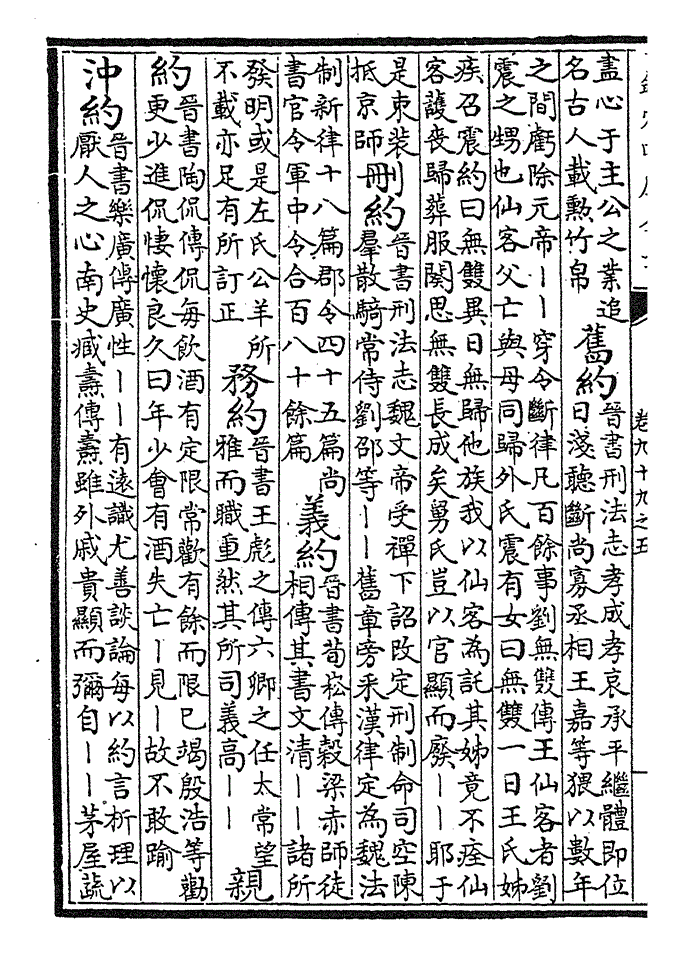 卷九十九之五
盡心于主公之業追
名古人載勲竹帛
舊約
晉書刑法志孝成孝哀承平繼體即位
日淺聽斷尚寡丞相王嘉等猥以數年
之間虧除元帝丨丨穿令斷律凡百餘事劉無雙傳王仙客者劉
震之甥也仙客父亡與母同歸外氏震有女曰無雙一日王氏姊
疾召震約曰無雙異日無歸他族我以仙客為託其姊竟不痊仙
客護喪歸葬服闋思無雙長成矣舅氏豈以官顯而廢丨丨耶于
是束装
抵京師
刪約
晉書刑法志魏文帝受禪下詔改定刑制命司空陳
羣散騎常侍劉邵等丨丨舊章旁采漢律定為魏法
制新律十八篇郡令四十五篇尚
書官令軍中令合百八十餘篇
義約
晉書荀崧傳穀梁赤師徒
相傳其書文清丨丨諸所
發明或是左氏公羊所
不載亦足有所訂正
務約
晉書王彪之傳六卿之任太常望
雅而職重然其所司義高丨丨
親
約
晉書陶侃傳侃每飲酒有定限常歡有餘而限已竭殷浩等勸
更少進侃悽懷良久曰年少曾有酒失亡丨見丨故不敢踰
沖約
晉書樂廣傳廣性丨丨有遠識尤善談論每以約言析理以
厭人之心南史臧燾傳燾雖外戚貴顯而彌自丨丨茅屋蔬